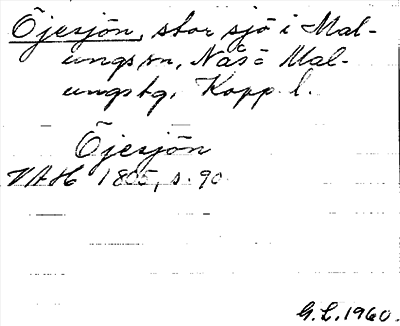 Öjesjön, stor sjö i Mal-
ungs sn, Nås o Mal-
ungs tg, Kopp. l.
Öjesjön
VAH 1805, s. 90
G.L. 1960.